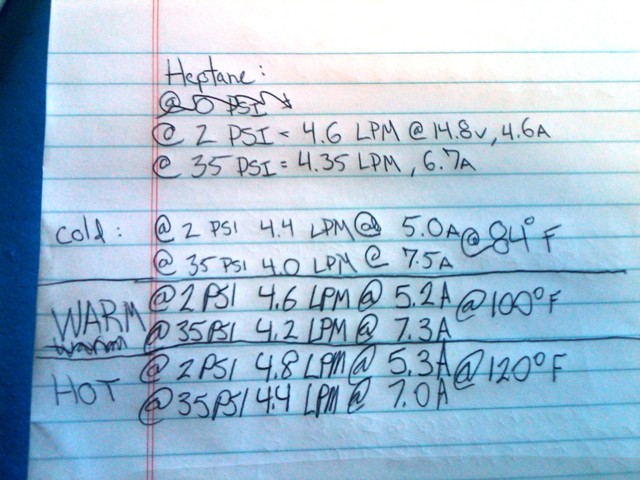 Heptane:
@ 0 PSI
@ 2 PSI = 4.6 LPM @ 14.8v, 4.6A
@ 35 PSI = 4.35 LPM, 6.7A
Cold: @ 2 PSI 4.4 LPM @ 5.0A @ 84°F
@ 35 PSI 4.0 LPM @ 7.5A
WARM @ 2 PSI 4.6 LPM @ 5.2A @ 100°F
warm @ 35 PSI 4.2 LPM @ 7.3A
HOT @ 2 PSI 4.8 LPM @ 5.3A @ 120°F
@ 35 PSI 4.4 LPM @ 7.0A